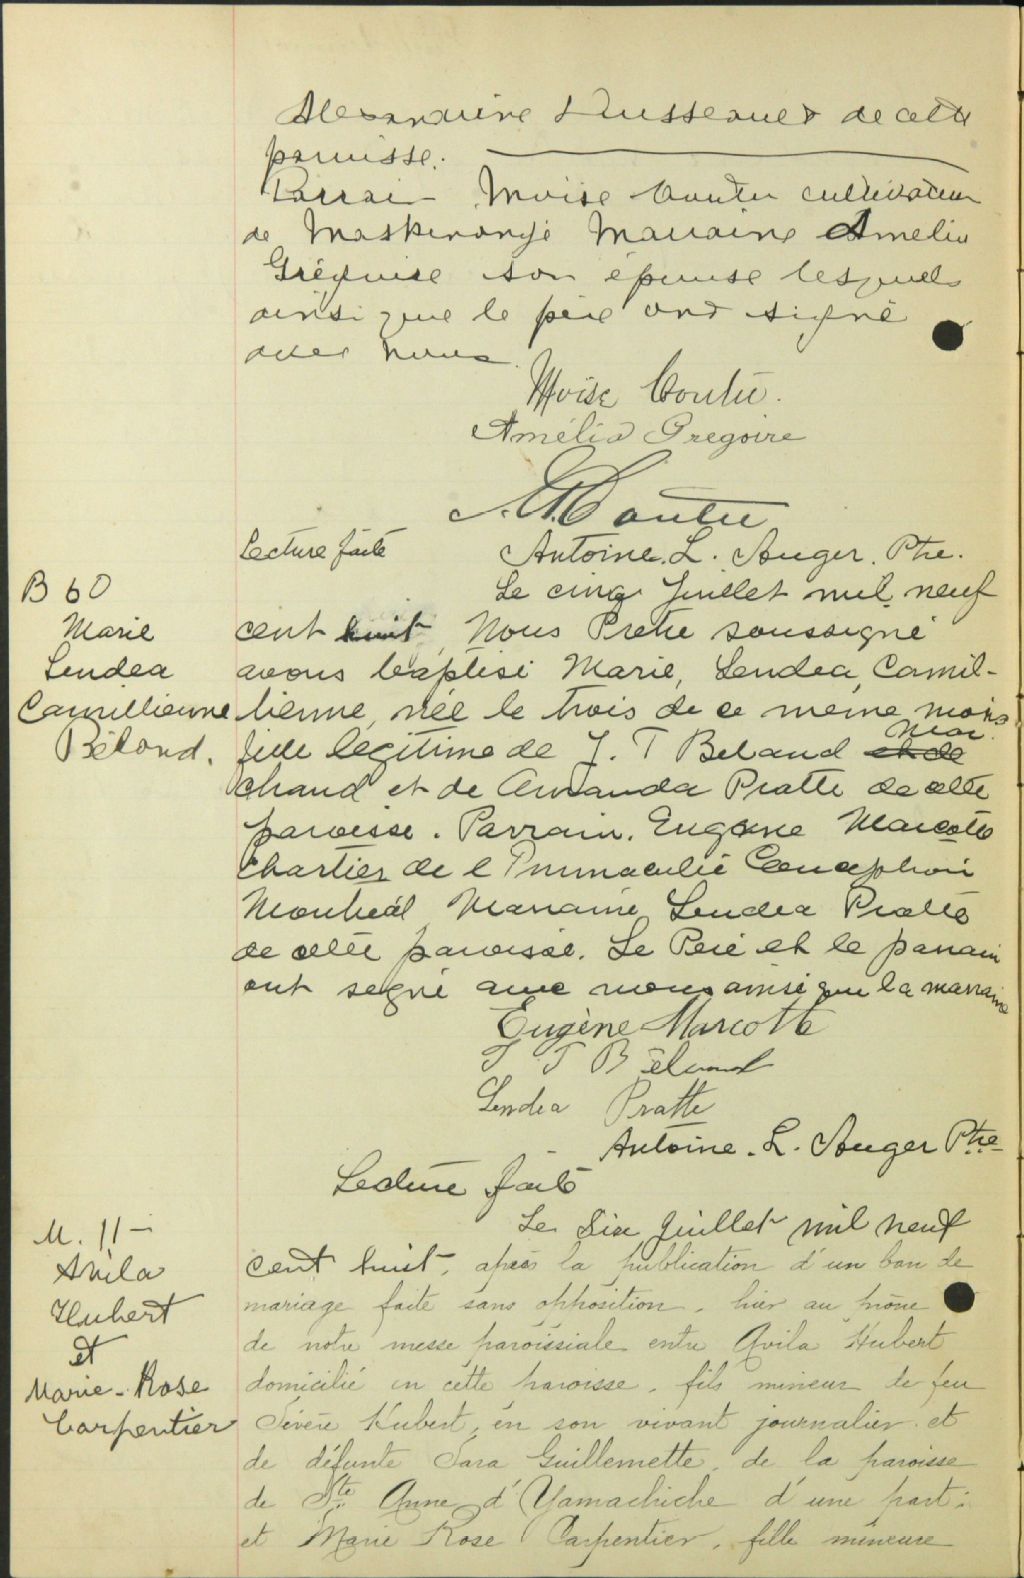 Alexandrine Dusseault de cette
paroisse.
Parrain Moise Coutu cultivateur
de Maskinongé Marraine Amelia
Grégoire son épouse lesquels
ainsi que le père ont signé
avec nous.
Moïse Coutu.
Amélia Gregoire
Coutu
Lecture faite Antoine. L. Auger. Ptre.
B 60
Marie
Lendea
Camillienne
Béland.
Le cinq Juillet mil neuf
cent huit, Nous Pretre soussigné
avons baptisé Marie, Lendea, Camil-
lienne, née le trois de ce meme mois
fille légitime de J. T Beland et de Mar
chand et de Amanda Pratte de cette
paroisse. Parrain. Eugene Marcotte
Chartier de l Immaculée Conception
Montreal Marraine Lendea Pratte
de cette paroisse. Le Père et le parrain
ont segné avec nous ainsi que la marraine
Eugène Marcotte
J T Béland
Lendea Pratte
Antoine. L. Auger Ptre
Lecture faite
M. 11-
Avila
Hubert
et
Marie-Rose
Carpentier
Le Six Juillet mil neuf
cent huit, après la publication d'un ban de
mariage faite sans opposition, hier au prône
de notre messe paroissiale entre Avila Hubert
domicilié en cette paroisse, fils mineur de feu
Sévère Hubert, en son vivant journalier et
de défunte Sara Guillemette, de la paroisse
de Ste Anne d'Yamachiche d'une part;
et Marie Rose Carpentier, fille mineure